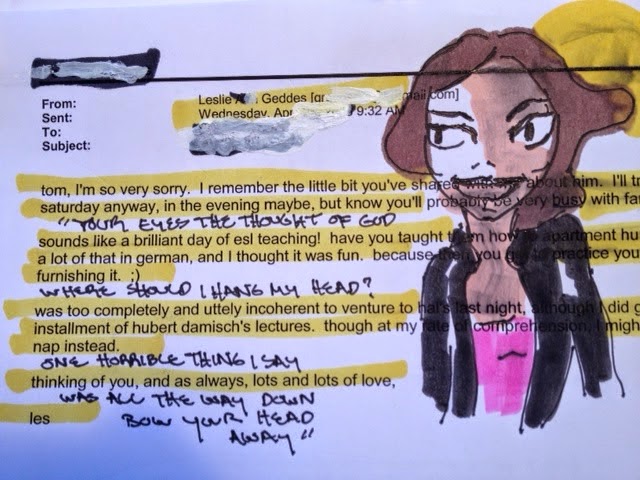 From: Leslie A Geddes [gr mail.com]
Sent: Wednesday, Apr 9:32 AM
To:
Subject:
tom, I'm so very sorry. I remember the little bit you've shared with me about him. I'll
saturday anyway, in the evening maybe, but know you'll probably be very busy with
"YOUR EYES THE THOUGHT OF GOD
sounds like a brilliant day of esl teaching! have you taught them how to apartment
a lot of that in german, and I thought it was fun. because then you get to practice
furnishing it. ;)
WHERE SHOULD I HANG MY HEAD?
was too completely and uttely incoherent to venture to hal's last night, although I did
installment of hubert damisch's lectures. though at my rate of comprehension, I
nap instead.
ONE HORRIBLE THING I SAY
thinking of you, and as always, lots and lots of love,
WAS ALL THE WAY DOWN
les BOW YOUR HEAD
AWAY"